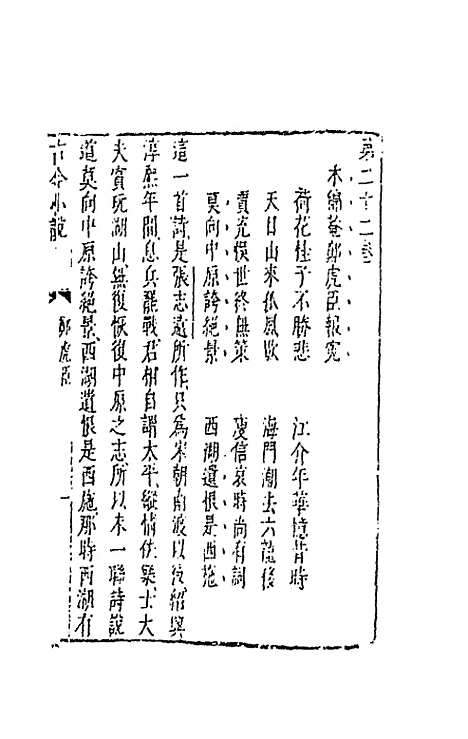 第二十二卷
木綿菴鄭虎臣報寃
荷花桂子不勝悲　江介年華憶昔時
天目山來孤鳳歇　海門潮去六龍移
賈充悞世終無策　庾信哀時尚有詞
莫向中原誇絕景　西湖遺恨是西施
這一首詩是張志遠所作只爲宋朝南渡以後紹興
淳熙年間息兵罷戰君相自謂太平縱情佚樂士大
夫賞玩湖山無復恢復中原之志所以末一聯詩說
道莫向中原誇絕景西湖遺恨是西施那時西湖有
古今小說　鄭虎臣　一